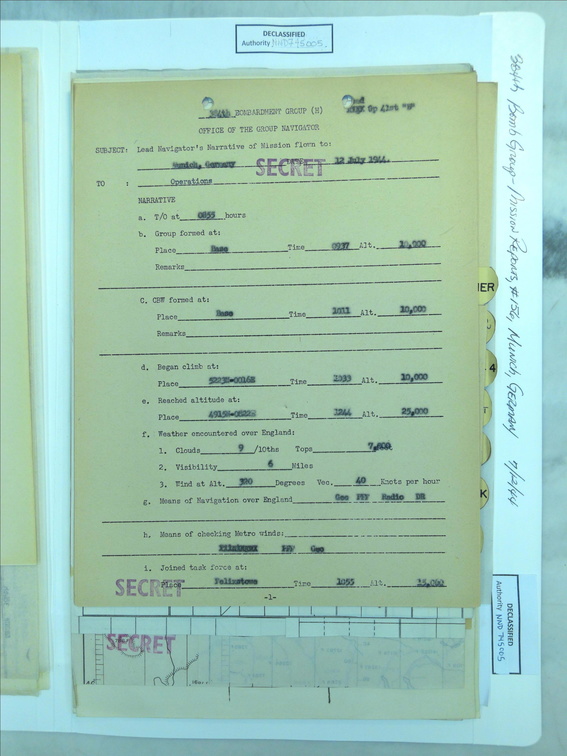 DECLASSIFIED
Authority NND745005
384th BOMBARDMENT GROUP (H)
Lead
Gp 41st "B"
OFFICE OF THE GROUP NAVIGATOR
SUBJECT: Lead Navigator's Narrative of Mission flown to:
Munich, Germany 12 July 1944.
SECRET
TO : Operations
NARRATIVE
a. T/O at 0855 hours
b. Group formed at:
Place Base Time 0937 Alt. 10,000
Remarks
C. CBW formed at:
Place Base Time 1011 Alt. 10,000
Remarks
d. Began climb at:
Place 5223N-0016E Time Alt. 10,000
e. Reached altitude at:
Place Time 1244 Alt. 25,000
f. Weather encountered over England:
1. Clouds 9 /10ths Tops
2. Visibility 6 Miles
3. Wind at Alt. 320 Degrees Vec. 40 Knots per hour
g. Means of Navigation over England Gee PFF Radio DR
h. Means of checking Metro winds:
Pilotage PFF Gee
i. Joined task force at:
Place Felixstowe Time 1055 Alt. 15,000
SECRET
-1-
SECRET
384th Bomb Group - Mission Reports, #156, Munich, Germany 7/12/44
DECLASSIFIED
Authority NND 745005
ER
4
K